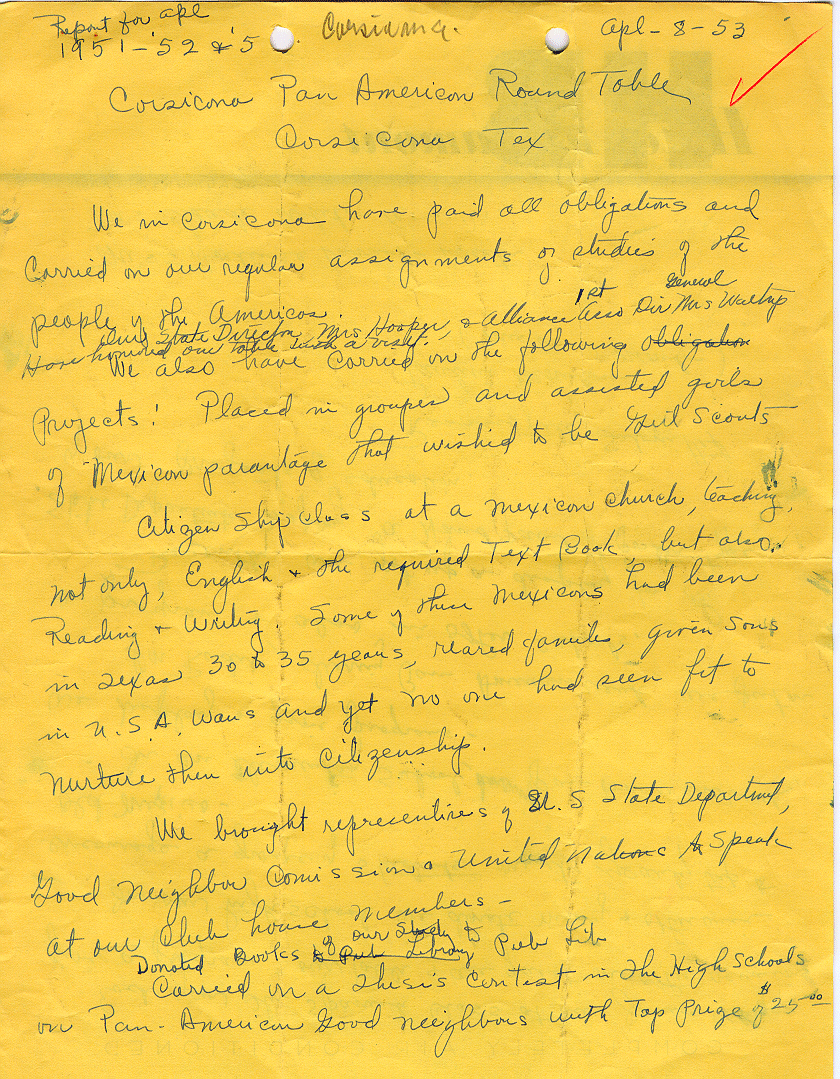 Report for apl
1951-'52 & '5
Corsicana.
Apl-8-53
Corsicana Pan American Round Table
Corsicana Tex
We in Corsicana have paid all obligations and
Carried on our regular assignments of studies of the
people of the Americas.
Our State Director, Mrs Hooper, & Alliance 1st Asso Dir General Mrs Waltrip
Have honored our table with a visit.
We also have Carried on the following obligation
Projects! Placed in groupes and assisted girls
of Mexican parantage that wished to be Girl Scouts
Citizen Ship Class at a Mexican church, teaching,
not only, English & the required Text Book, but also.
Reading & Writing. Some of these Mexicans had been
in Texas 30 to 35 years, reared families, given Sons
in U.S.A. Wars and yet no one had seen fit to
Nurture them into Citizenship.
We brought representives of U.S State Department,
Good Neighbor Comission & United Nations to Speak
at our Club house members-
Donated Books of our Study to Pub Lib
to Pub Library
Carried on a Thesis Contest in the High Schools
on Pan-American Good Neighbors with Top Prize of $25.00